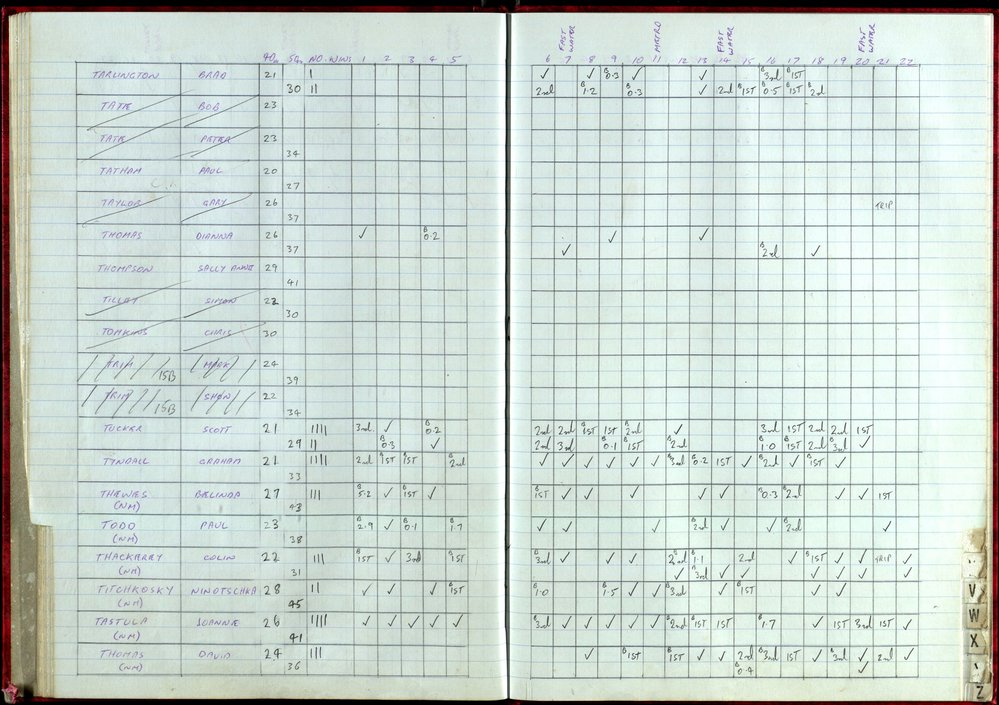 FAST WATER METRO FAST WATER FAST WATER
40m 50m NO. WINS 1 2 3 4 5 6 7 8 9 10 11 12 13 14 15 16 17 18 19 20 21 22
TARLINGTON BRAD 21 I ✓ ✓ B 0.3 ✓ ✓ B 3rd B 1ST
30 II 2nd B 1.2 B 0.3 ✓ 2nd B 1ST B 0.5 B 1ST B 2nd
TATE BOB 23
TATE PETER 23
34
TATHAM PAUL 20
27
TAYLOR GARY 26 TRIP
37
THOMAS DIANNA 26 ✓ B 0.2 ✓ ✓
37 ✓ B 2nd ✓
THOMPSON SALLY ANNE 29
41
TILLEY SIMON 22
30
TOMKINS CHRIS 30
TRIM 15B MARK 24
39
TRIM 15B SHON 22
34
TUCKER SCOTT 21 IIII 3rd ✓ B 0.2 2nd 2nd B 1ST 1ST B 2nd ✓ 3rd 1ST 2nd 2nd 1ST
29 II B 0.3 ✓ 2nd 3rd B 0.1 B 1ST B 2nd B 1.0 B 1ST 2nd B 3rd ✓
TYNDALL GRAHAM 21 IIII 2nd B 1ST B 1ST B 2nd ✓ ✓ ✓ ✓ ✓ ✓ B 3rd B 0.2 1ST ✓ B 2nd ✓ B 1ST ✓
33
THEWES BELINDA 27 III B 5.2 ✓ B 1ST ✓ B 1ST ✓ ✓ ✓ ✓ ✓ B 0.3 B 2nd ✓ ✓ 1ST
(NM) 43
TODD PAUL 23 B 2.9 ✓ B 0.1 B 1.7 ✓ ✓ ✓ B 2nd ✓ ✓ B 2nd ✓
(NM) 38
THACKERRY COLIN 22 III B 1ST ✓ 3rd B 1ST B 3rd ✓ ✓ ✓ B 2nd B 1.1 2nd ✓ B 1ST ✓ ✓ TRIP ✓
(NM) 31 ✓ B 3rd ✓ ✓ ✓ ✓ ✓ ✓
TITCHKOSKY NINOTSCHKA 28 II ✓ ✓ ✓ B 1ST B 1.0 B 1.5 ✓ ✓ B 3rd ✓ B 1ST ✓ ✓
(NM) 45
TASTULA JOANNE 26 IIII ✓ ✓ ✓ ✓ ✓ B 3rd ✓ ✓ ✓ ✓ ✓ B 2nd B 1ST 1ST B 1.7 ✓ 1ST 3rd 1ST ✓
(NM) 41
THOMAS DAVID 24 III ✓ B 1ST B 1ST ✓ 2nd B 3rd 1ST ✓ B 3rd ✓ 2nd ✓
(NM) 36 B 0.4 ✓
V
W
X
Z